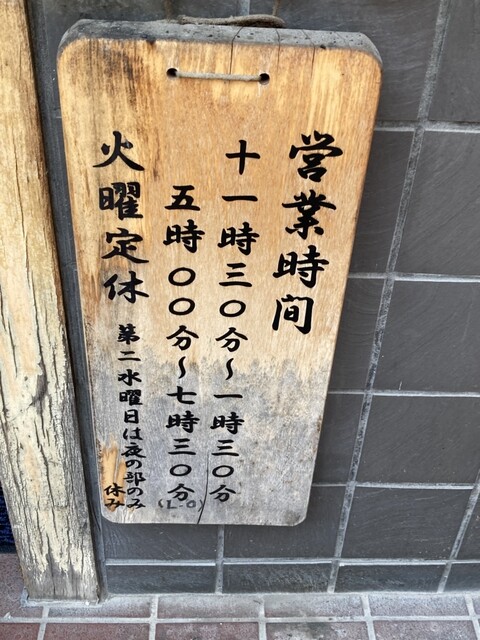 営業時间
十一時三〇分～一時三〇分
五時〇〇分～七時三〇分
(L-O)
火曜定休 第二水曜日は夜の部のみ
休み